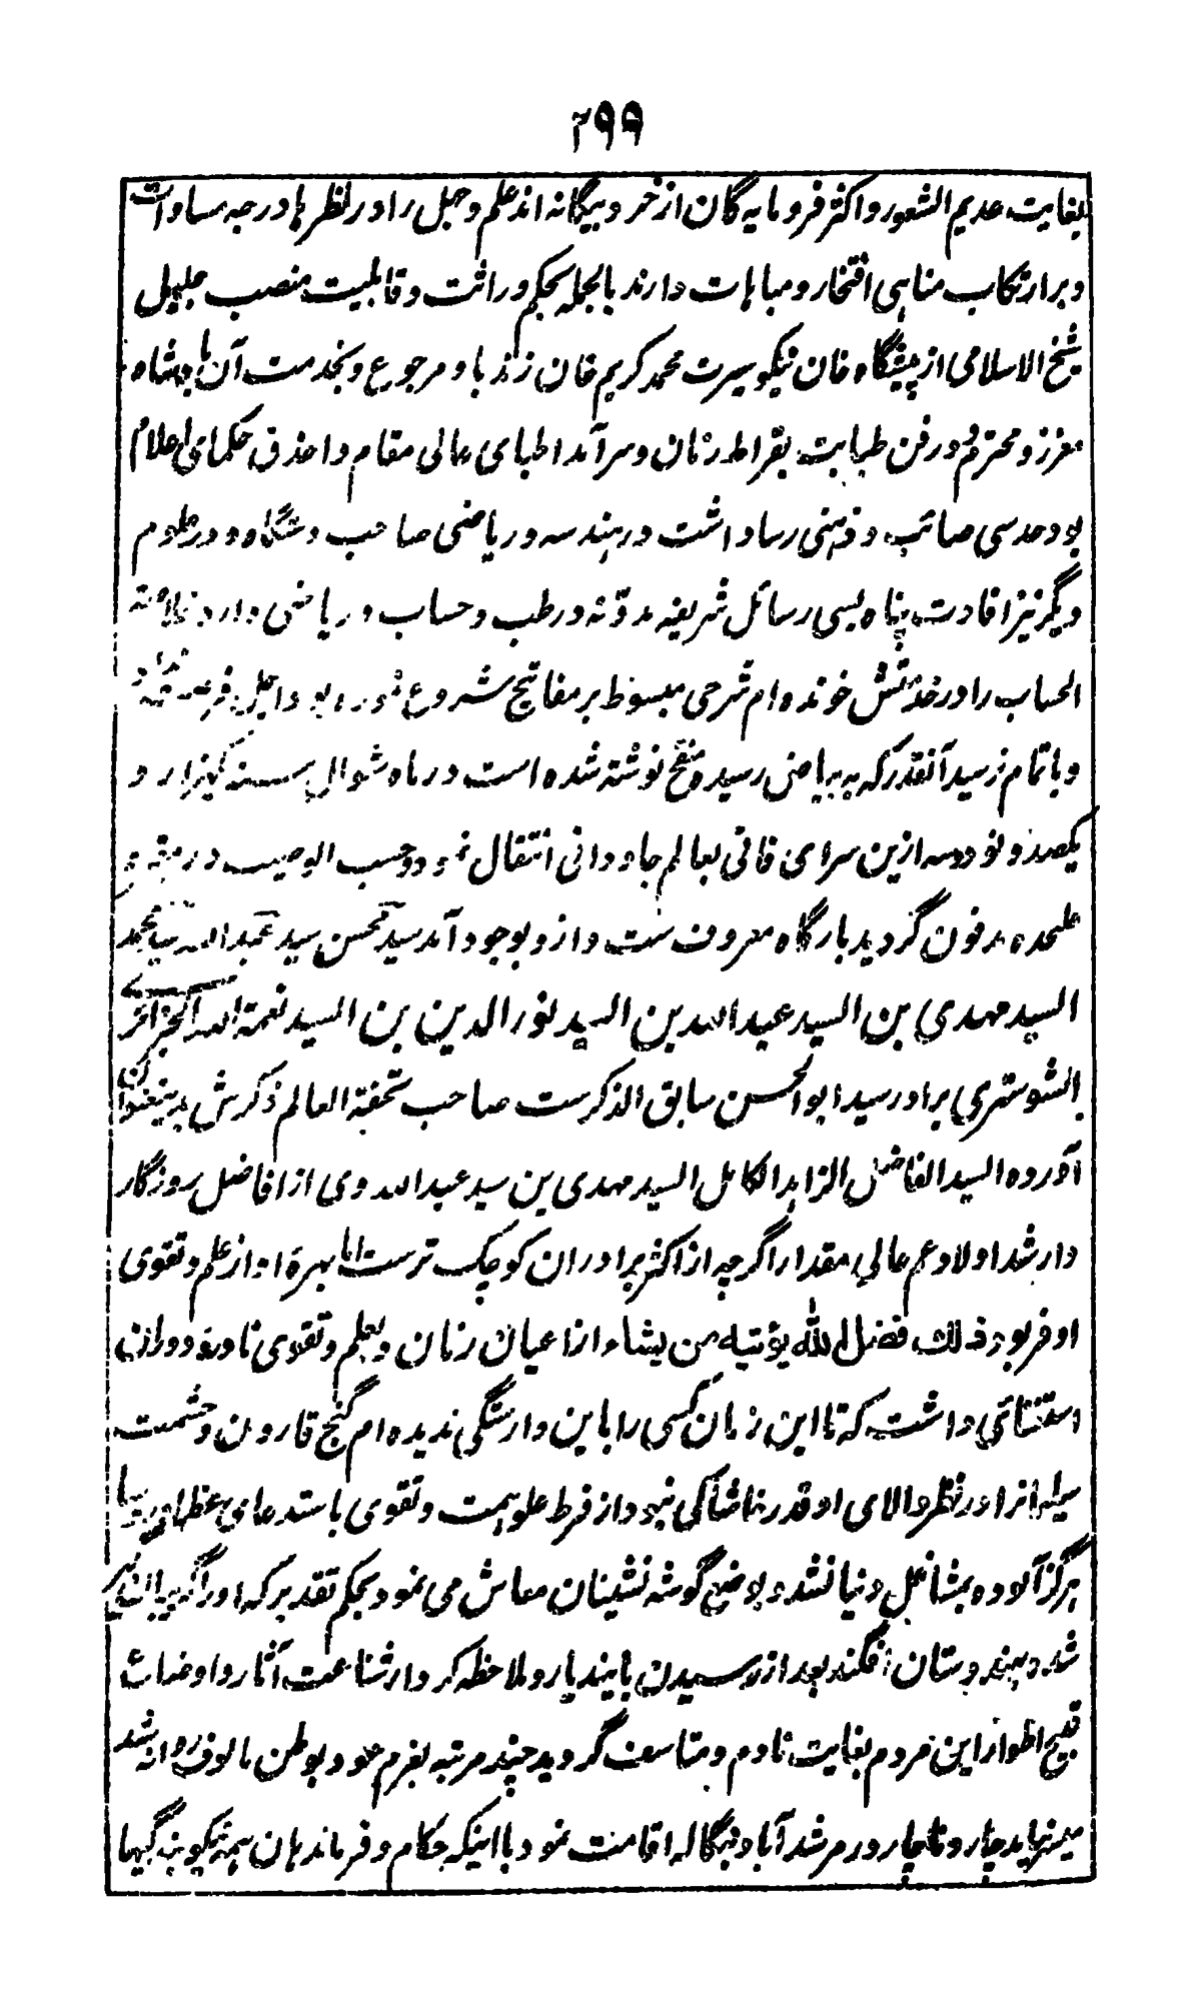 ۲۹۹
بغایت عدیم الشعور و اکثر فرومایه گان از خرد بیگانه اند علم و جهل را در نظرها درجه مساوات
و بر ارتکاب مناهی افتخار و مباهات دارند بالجمله بحکم وراثت و قابلیت منصب جلیل
شیخ الاسلامی از پیشگاه خان نیکو سیرت محمد کریم خان زند باو مرجوع و بخدمت آن پادشاه
معزز و محترم و در فن طبابت بقراط زمان و سرآمد اطبای عالی مقام و احذق حکمای اعلام
بود حدسی صائب و ذهنی رسا داشت در هندسه و ریاضی صاحب دستگاه و در علوم
دیگر نیز افادت پناه بسی رسائل شریفه مدونه در طب و حساب و ریاضی دارد خلاصة
الحساب را در خدمتش خوانده ام شرحی مبسوط بر مفاتیح شروع نموده بود اجل فرصت نداد
و باتمام نرسید آنقدر که به بیاضی رسیده منقح نوشته شده است در ماه شوال سنه یکهزار و
یکصد و نود و سه ازین سرای فانی بعالم جاودانی انتقال نمود و حسب الوصیت در مقبره
علیحده مدفون گردید بارگاه معروف ست و ازو بوجود آمد سید محسن سید عبد الله سید محمد
السید مهدی بن السید عبد الله بن السید نور الدین بن السید نعمة الله الجزائری
الشوشتری برادر سید ابو الحسن سابق الذکرست صاحب تحفة العالم ذکرش بدینعنوان
آورده السید الفاضل الزاهد الکامل السید مهدی بن سید عبد الله وی از افاضل روزگار
و ارشد اولاد عم عالی مقدار اگرچه از اکثر برادران کوچک ترست اما بهرهٔ او از علم و تقوی
اوفر بود ذلک فضل الله یؤتیه من یشاء از اعیان زمان و بعلم و تقوی نادرهٔ دوران
استغنائی داشت که تا این زمان کسی را باین وارستگی ندیده ام گنج قارون و حشمت
سلیمانرا در نظر والای او قدر خاشاکی نبود از فرط علو همت و تقوی باستدعای عظمای رؤسا
هرگز آلوده بمشاغل دنیا نشد و بوضع گوشه نشینان معاش می نمود بحکم تقدیر که او را گریبان گیر
شد و بهندوستان افکند بعد از رسیدن باین دیار و ملاحظه کردار شناعت آثار و اوضاع
قبیح اطوار این مردم بغایت نادم و متاسف گردید چند مرتبه بعزم عود بوطن مالوف روانه شد
میسر نیامد چار و ناچار در مرشد آباد بنگاله اقامت نمود با اینکه حکام و فرماندهان همه نیکو بندگیها